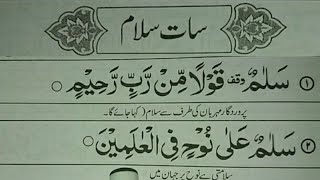 سات سلام
۱ سَلٰمٌ وقف قَوْلًا مِّنْ رَّبٍّ رَّحِيْمٍ ○
پروردگار مہربان کی طرف سے سلام (کہا جائے گا۔
۲ سَلٰمٌ عَلٰى نُوْحٍ فِى الْعٰلَمِيْنَ ○
سلامتی ہے نوح پر جہان میں